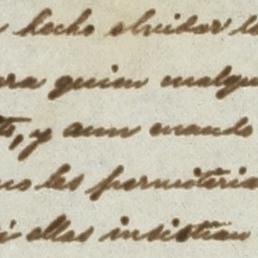 hecho olvidar l
ara quien cualqu
y aun cuando
no les permitiria
i ellas insistian